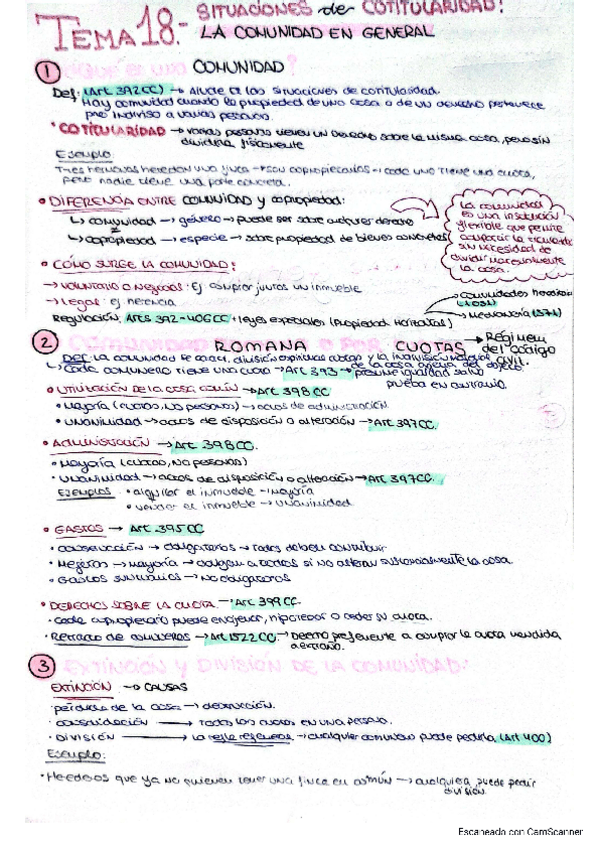 TEMA 18.- SITUACIONES de COTITULARIDAD:
LA COMUNIDAD EN GENERAL
1 ¿QUÉ ES UNA COMUNIDAD?
Def: (Art. 392 CC) → Alude a las situaciones de cotitularidad.
Hay comunidad cuando la propiedad de una cosa o de un derecho pertenece
pro indiviso a varias personas.
• COTITULARIDAD → varias personas tienen un derecho sobre la misma cosa, pero sin
dividirla físicamente
Ejemplo:
Tres hermanos heredan una finca → son copropietarios → cada uno tiene una cuota,
pero nadie tiene una parte concreta.
• DIFERENCIA ENTRE COMUNIDAD y copropiedad:
↳ comunidad → género → puede ser sobre cualquier derecho
≠
↳ copropiedad → especie → sobre propiedad de bienes concretos
La comunidad
es una institución
flexible que permite
sin necesidad de
dividir
la cosa.
• CÓMO SURGE LA COMUNIDAD:
→ VOLUNTARIO o Negocial: Ej comprar juntos un inmueble
→ Legal: ej herencia
Regulación: Arts 392-406 CC + leyes especiales (Propiedad Horizontal)
Comunidades
Medianería (571)
2 COMUNIDAD ROMANA O POR CUOTAS → Régimen
del Código
Civil.
Def: La comunidad se
↳ Cada comunero tiene una cuota → Art 393 → presume igualdad salvo
prueba en contrario.
• UTILIZACIÓN DE LA COSA COMÚN → Art 398 CC
• Mayoría (cuotas, no personas) → actos de administración
• Unanimidad → actos de disposición o alteración → Art 397 CC.
• ADMINISTRACIÓN → Art. 398 CC.
• Mayoría (cuotas, no personas)
• Unanimidad → actos de disposición o alteración → Art 397 CC.
EJEMPLOS • alquilar el inmueble → mayoría
• vender el inmueble → unanimidad
• GASTOS → Art. 395 CC
• conservación → obligatorios → Todos deben contribuir
• Mejoras → mayoría → obligan a todos si no alteran sustancialmente la cosa
• Gastos suntuarios → no obligatorios
• DERECHOS SOBRE LA CUOTA → Art 399 CC.
• cada copropietario puede enajenar, hipotecar o ceder su cuota.
• Retracto de comuneros → Art 1522 CC → Derecho preferente a comprar la cuota vendida
a extraño.
3 EXTINCIÓN Y DIVISIÓN DE LA COMUNIDAD:
EXTINCIÓN → CAUSAS
• pérdida de la cosa → destrucción.
• consolidación → Todas las cuotas en una persona.
• DIVISIÓN → La → cualquier comunero puede pedirla (Art 400)
Ejemplo:
• Herederos que ya no quieren tener una finca en común → cualquiera puede pedir
división.
Escaneado con CamScanner